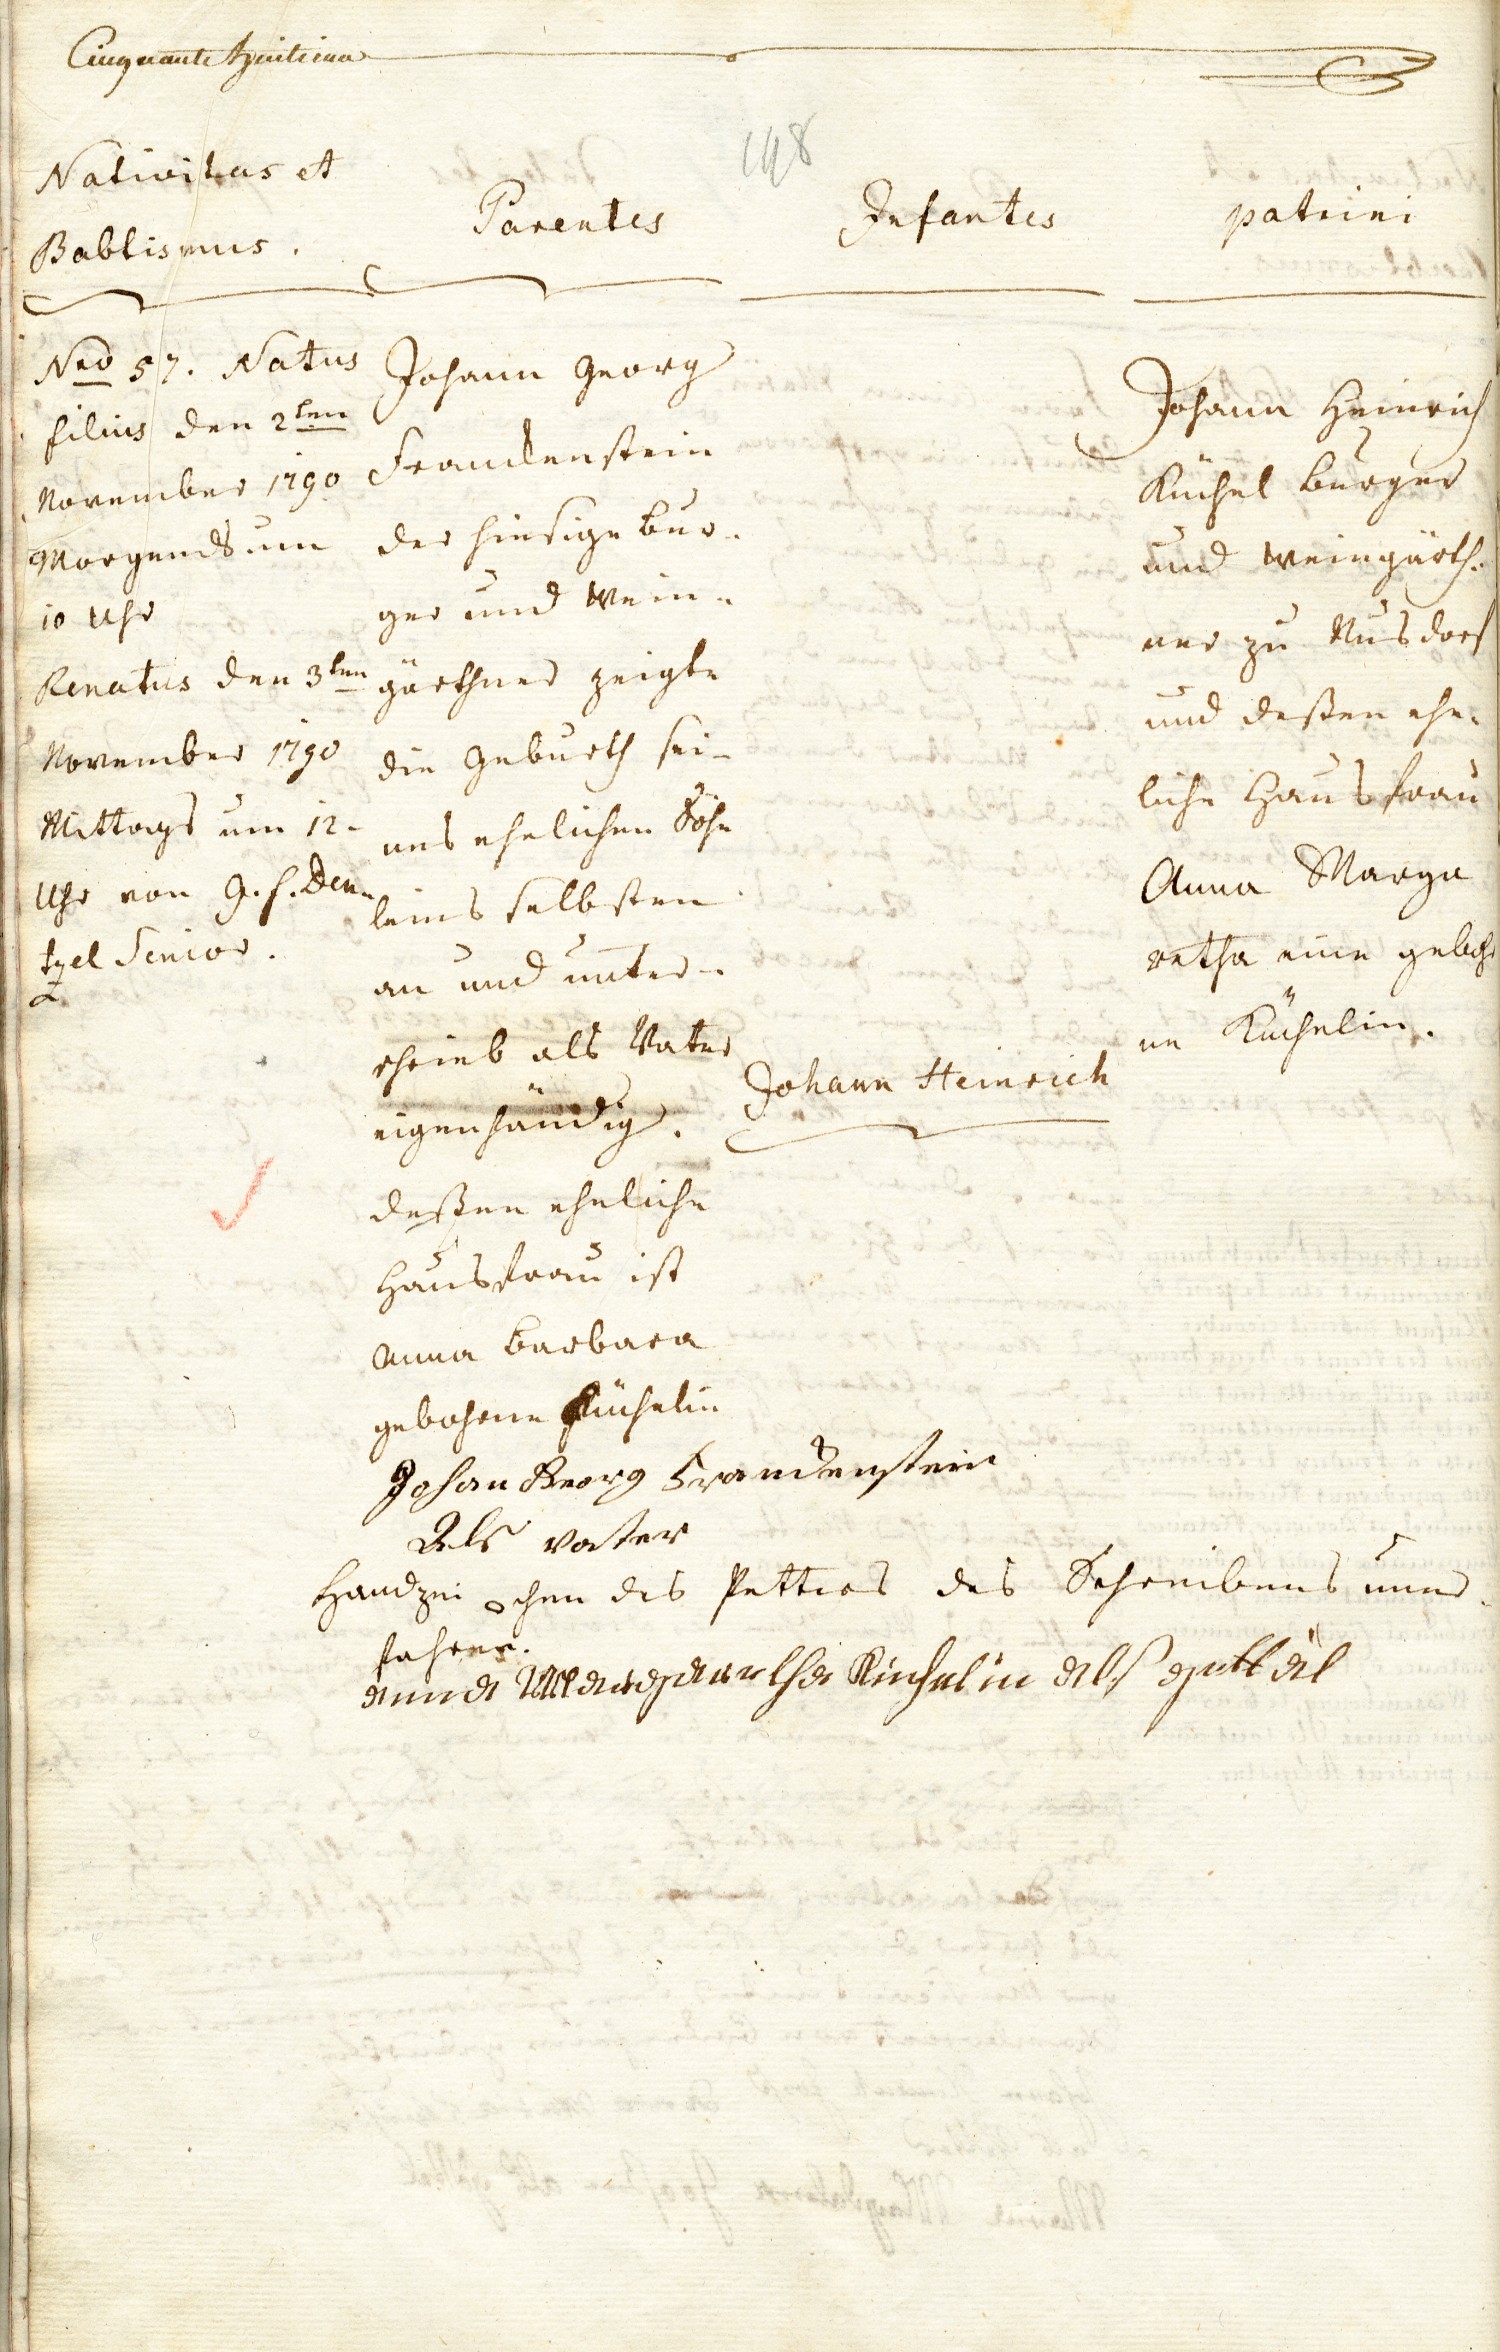 Cinquante huitieme
148
Nativitas et
Babtismus.
Parentes
Infantes
patrini
Nro 57. Natus
filius den 2ten
November 1790
Morgends um
10 Uhr
Renatus den 3ten
November 1790
Mittags um 12-
Uhr von G. f. Den-
tzel Senior.
Johann Georg
Frandenstein
der hiesige Bur-
ger und Wein-
gärthner zeigte
die Geburth sei-
nes ehelichen Söhn
leins selbsten
an und unter-
schrieb als Vater
eigenhändig.
deßen eheliche
Hausfrau ist
Anna Barbara
gebohrne Küchelin
Johann Heinrich
Johann Heinrich
Küchel Burger
und Weingärth-
ner zu Nusdorf
und deßen ehe-
liche Hausfrau
Anna Marga
retha eine gebohr
ne Küchelin.
Johan Georg Frandenstein
Als vater
Handzei o chen des Petters des Schreibens uner-
fahren.
anna Margaretha Küchelin als